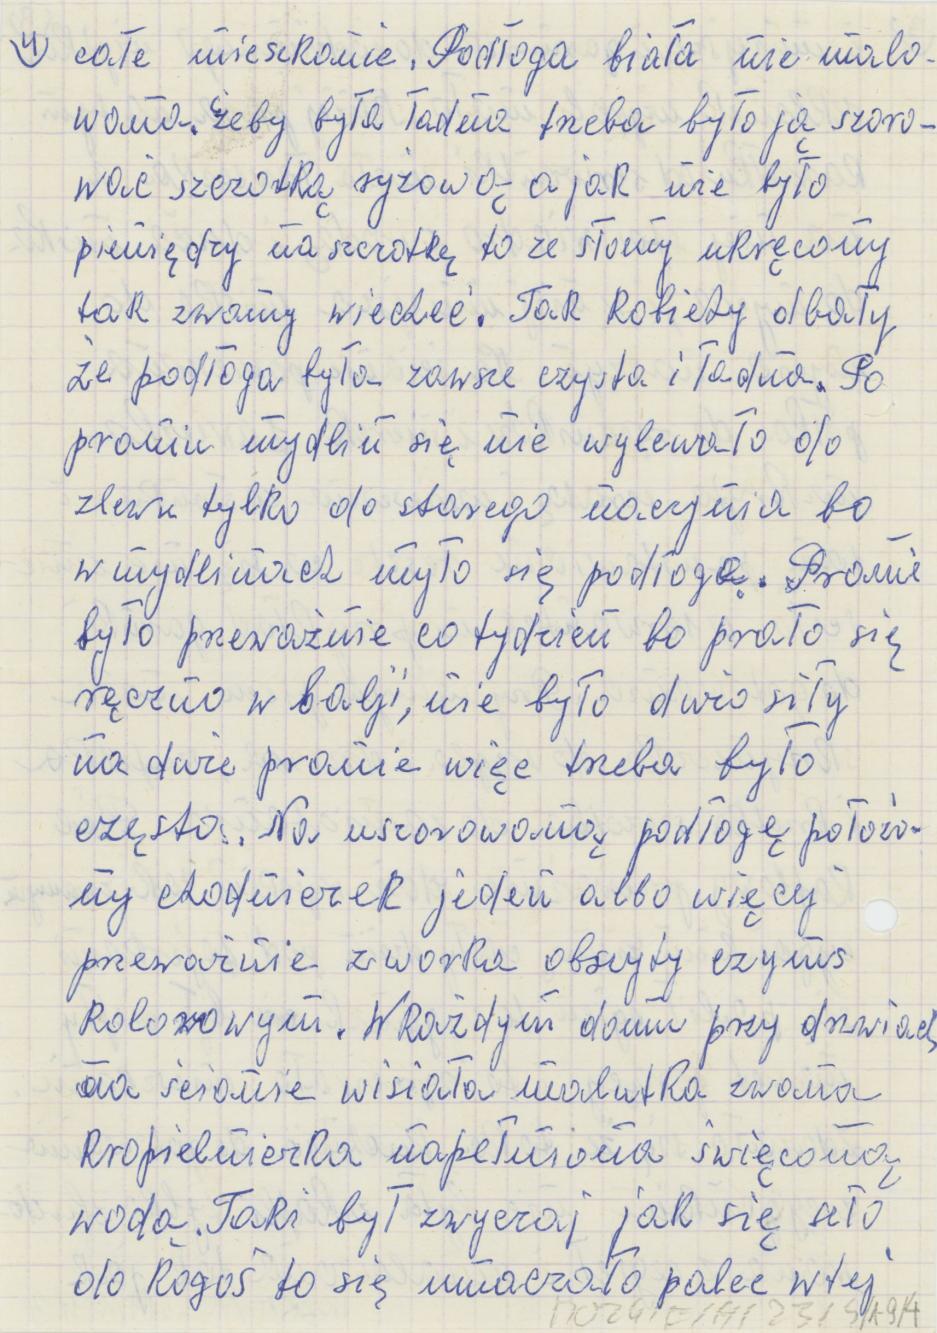 4
całe mieszkanie. Podłoga biała nie malo-
wana. żeby była ładna trzeba było ją szoro-
wać szczotką ryżową a jak nie było
pieniędzy na szczotkę to ze słomy ukręcony
tak zwany wiecheć. Tak kobiety dbały
że podłoga była zawsze czysta i ładna. Po
praniu mydlin się nie wylewało do
zlewu tylko do starego naczynia bo
w mydlinach myło się podłogę. Pranie
było przeważnie co tydzień bo prało się
ręczno w balji, nie było dwio siły
na duże pranie więc trzeba było
często. Na uszorowaną podłogę położo-
ny chodniczek jeden albo więcyj
przeważnie z worka obszyty czyms
kolorowym. W każdym domu przy drzwiach
na ścianie wisiała malutka zwana
kropielniczka napełniona święconą
wodą. Taki był zwyczaj jak się szło
do kogoś to się umaczało palec w tej